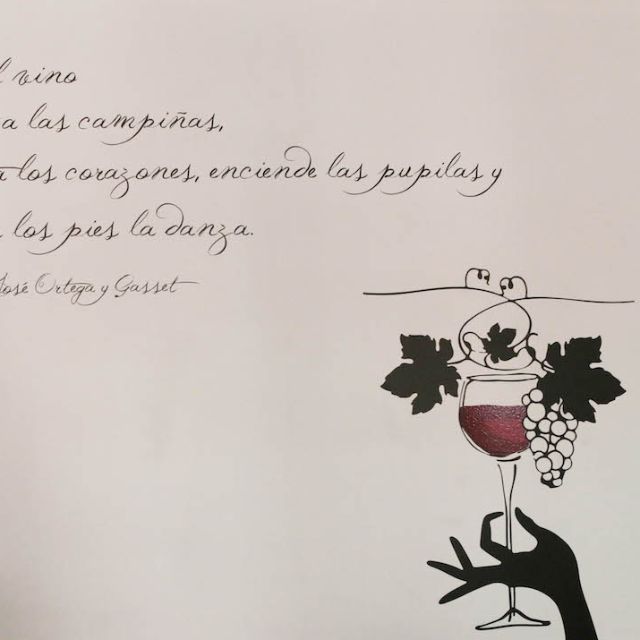 l vino
a las campiñas,
a los corazones, enciende las pupilas y
los pies la danza.
José Ortega y Gasset